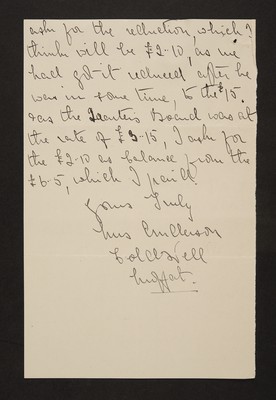 ask for the reduction, which I
think will be £2-10, as we
had got it reduced after he
was in some time, to the £15.
as the Quarters Board was at
the rate of £3-15, I ask for
the £2-10 as balance from the
£6-5, which I paid.
Yours Truly
Mrs
Coldwell
Moffat.